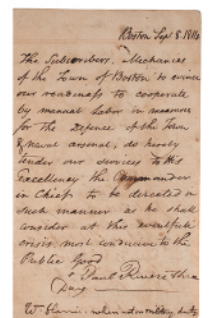 Boston Sep 8, 1814
The Subscribers, Mechanics
of the Town of Boston to evince
our readiness to cooperate
by manual labor in measures
for the Defence of the Town
& naval arsenal, do hereby
tender our services to His
Excellency the Commander
in Chief to be directed in
such manner as he shall
consider at this eventful
crisis most conducive to the
Public Good
Paul Revere
Wm Harris when not on military duty